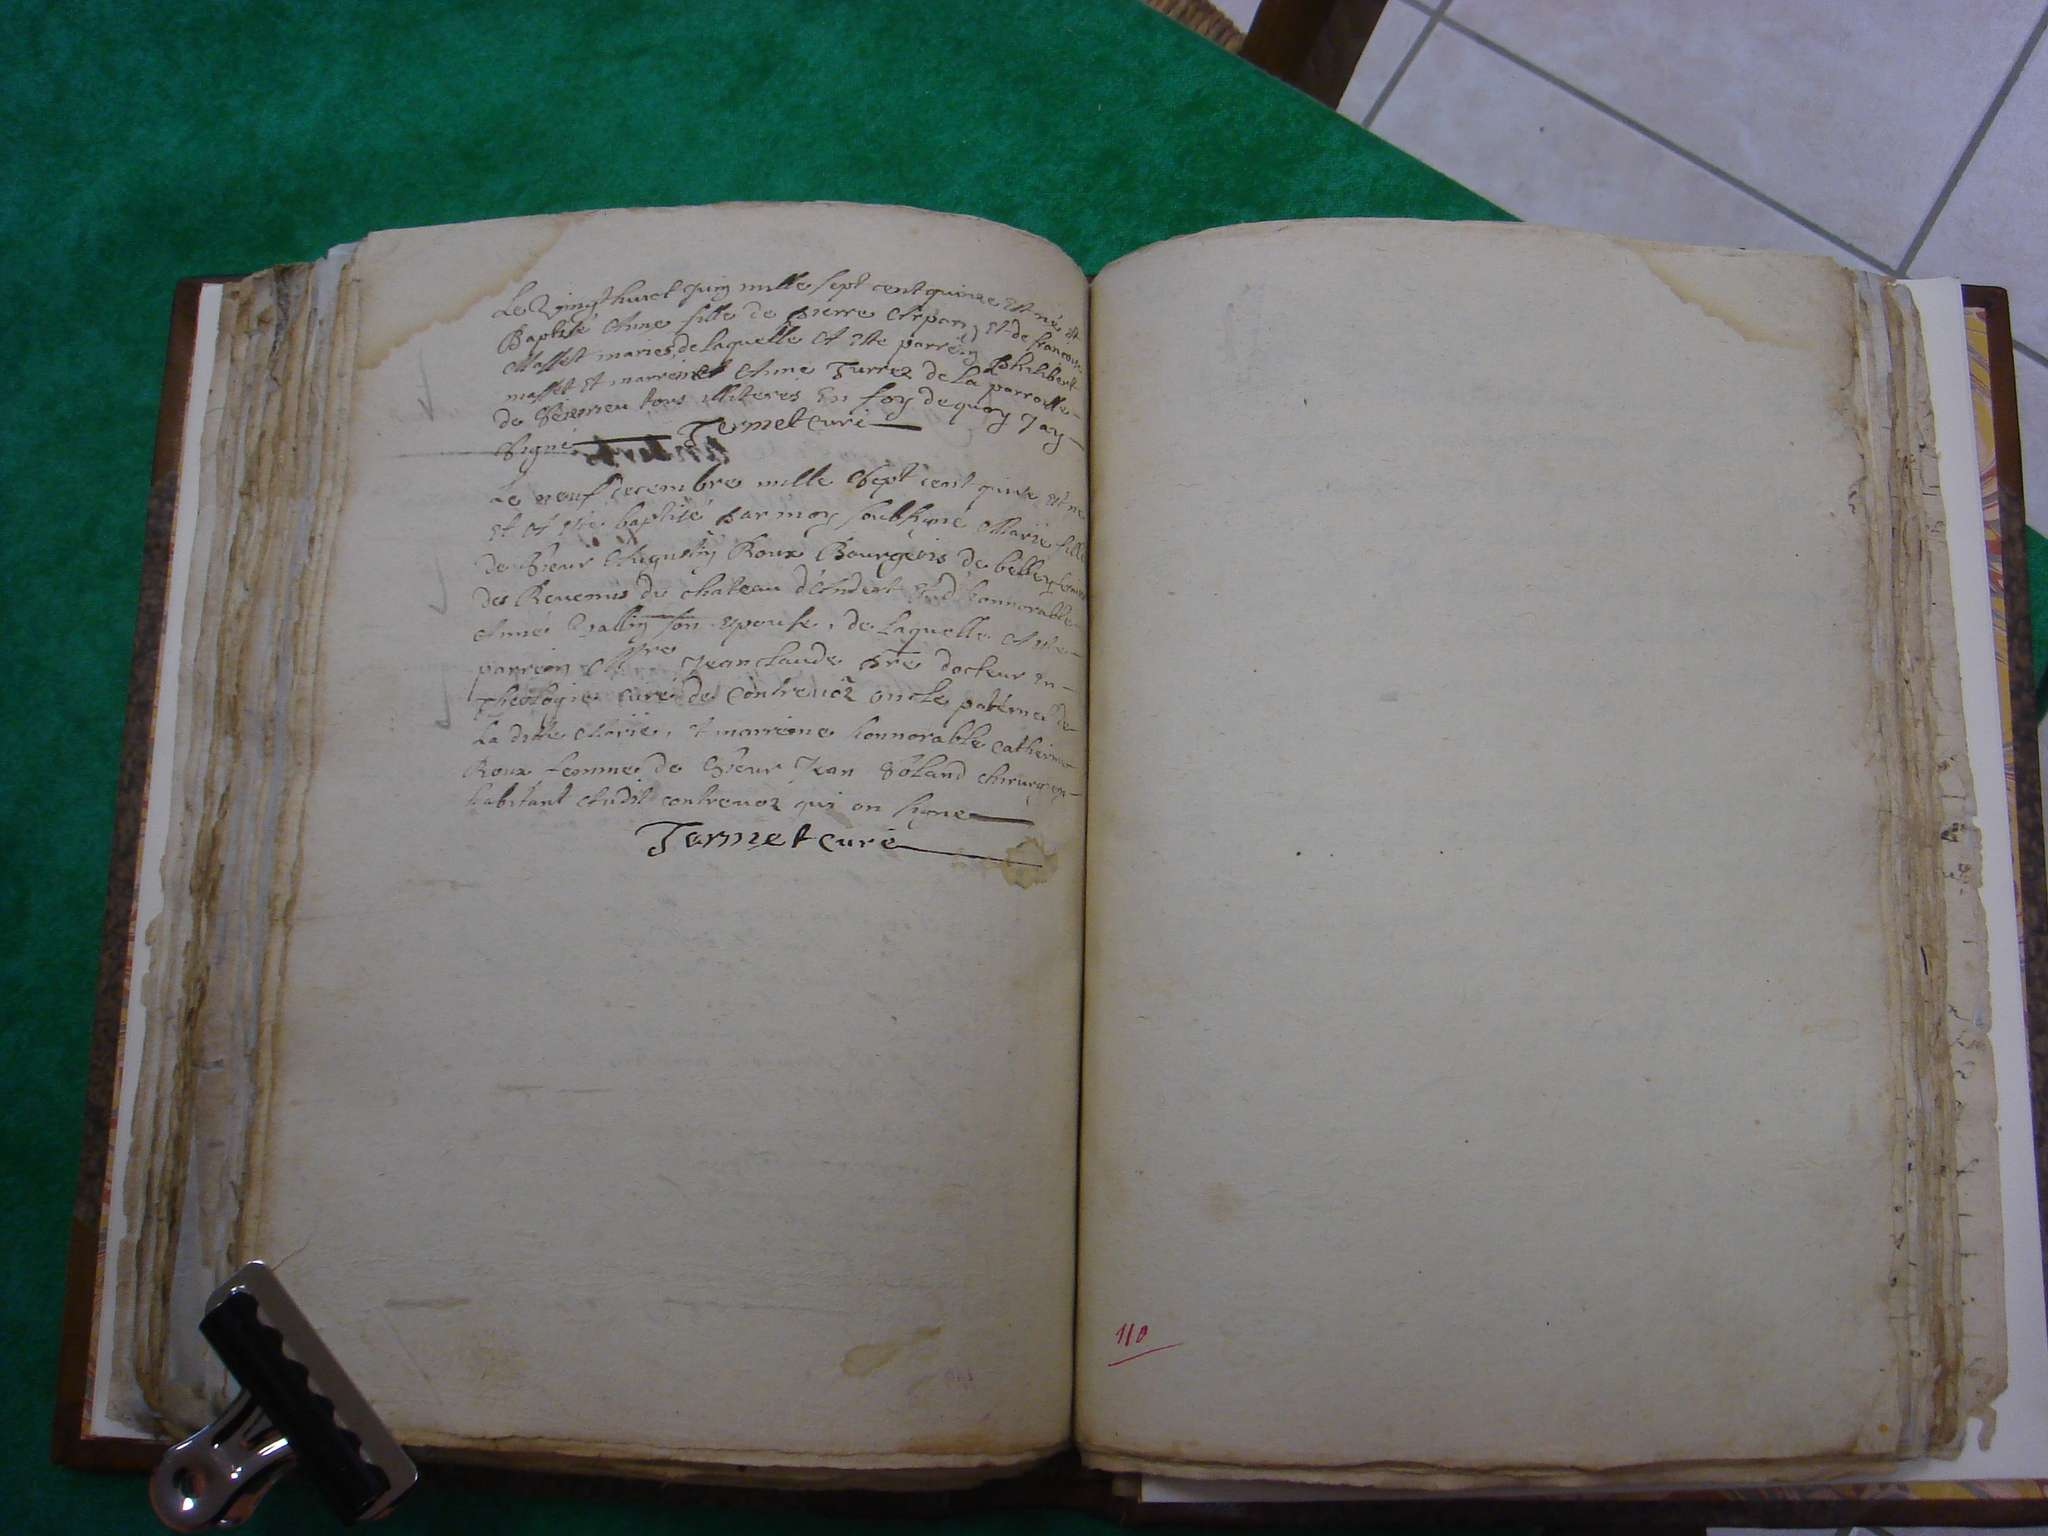 Le Vingt huict Juin mille sept cent quinze Est né Et
Baptisé Anne fille de pierre Arpan Et de francoise
Masset maries, de laquelle A Este parrein Philibert
masset Et marreine Anne Turrer de La parroisse
de tous illiteres En foy de quoy Jay
Signé Termet Curé
Le neuf decembre mille Sept cent quinze Est né
Et A Esté baptisé par moy soubsigné Marie fille
de Sieur Augustin Roux Bourgeois de belley fermier
des Revenus du chateau d'Andert Et d'honnorable
Anne Vallin son epouse, de Laquelle A Este
parrein Mre Jean claude Pre docteur En
Theologie curé de Contrevoz oncle paternel de
La ditte Marie, Et marreine honnorable catherine
Roux femme de Sieur Jean Boland chirurgien
habitant Audit contrevoz qui on signe
Termet Curé
110